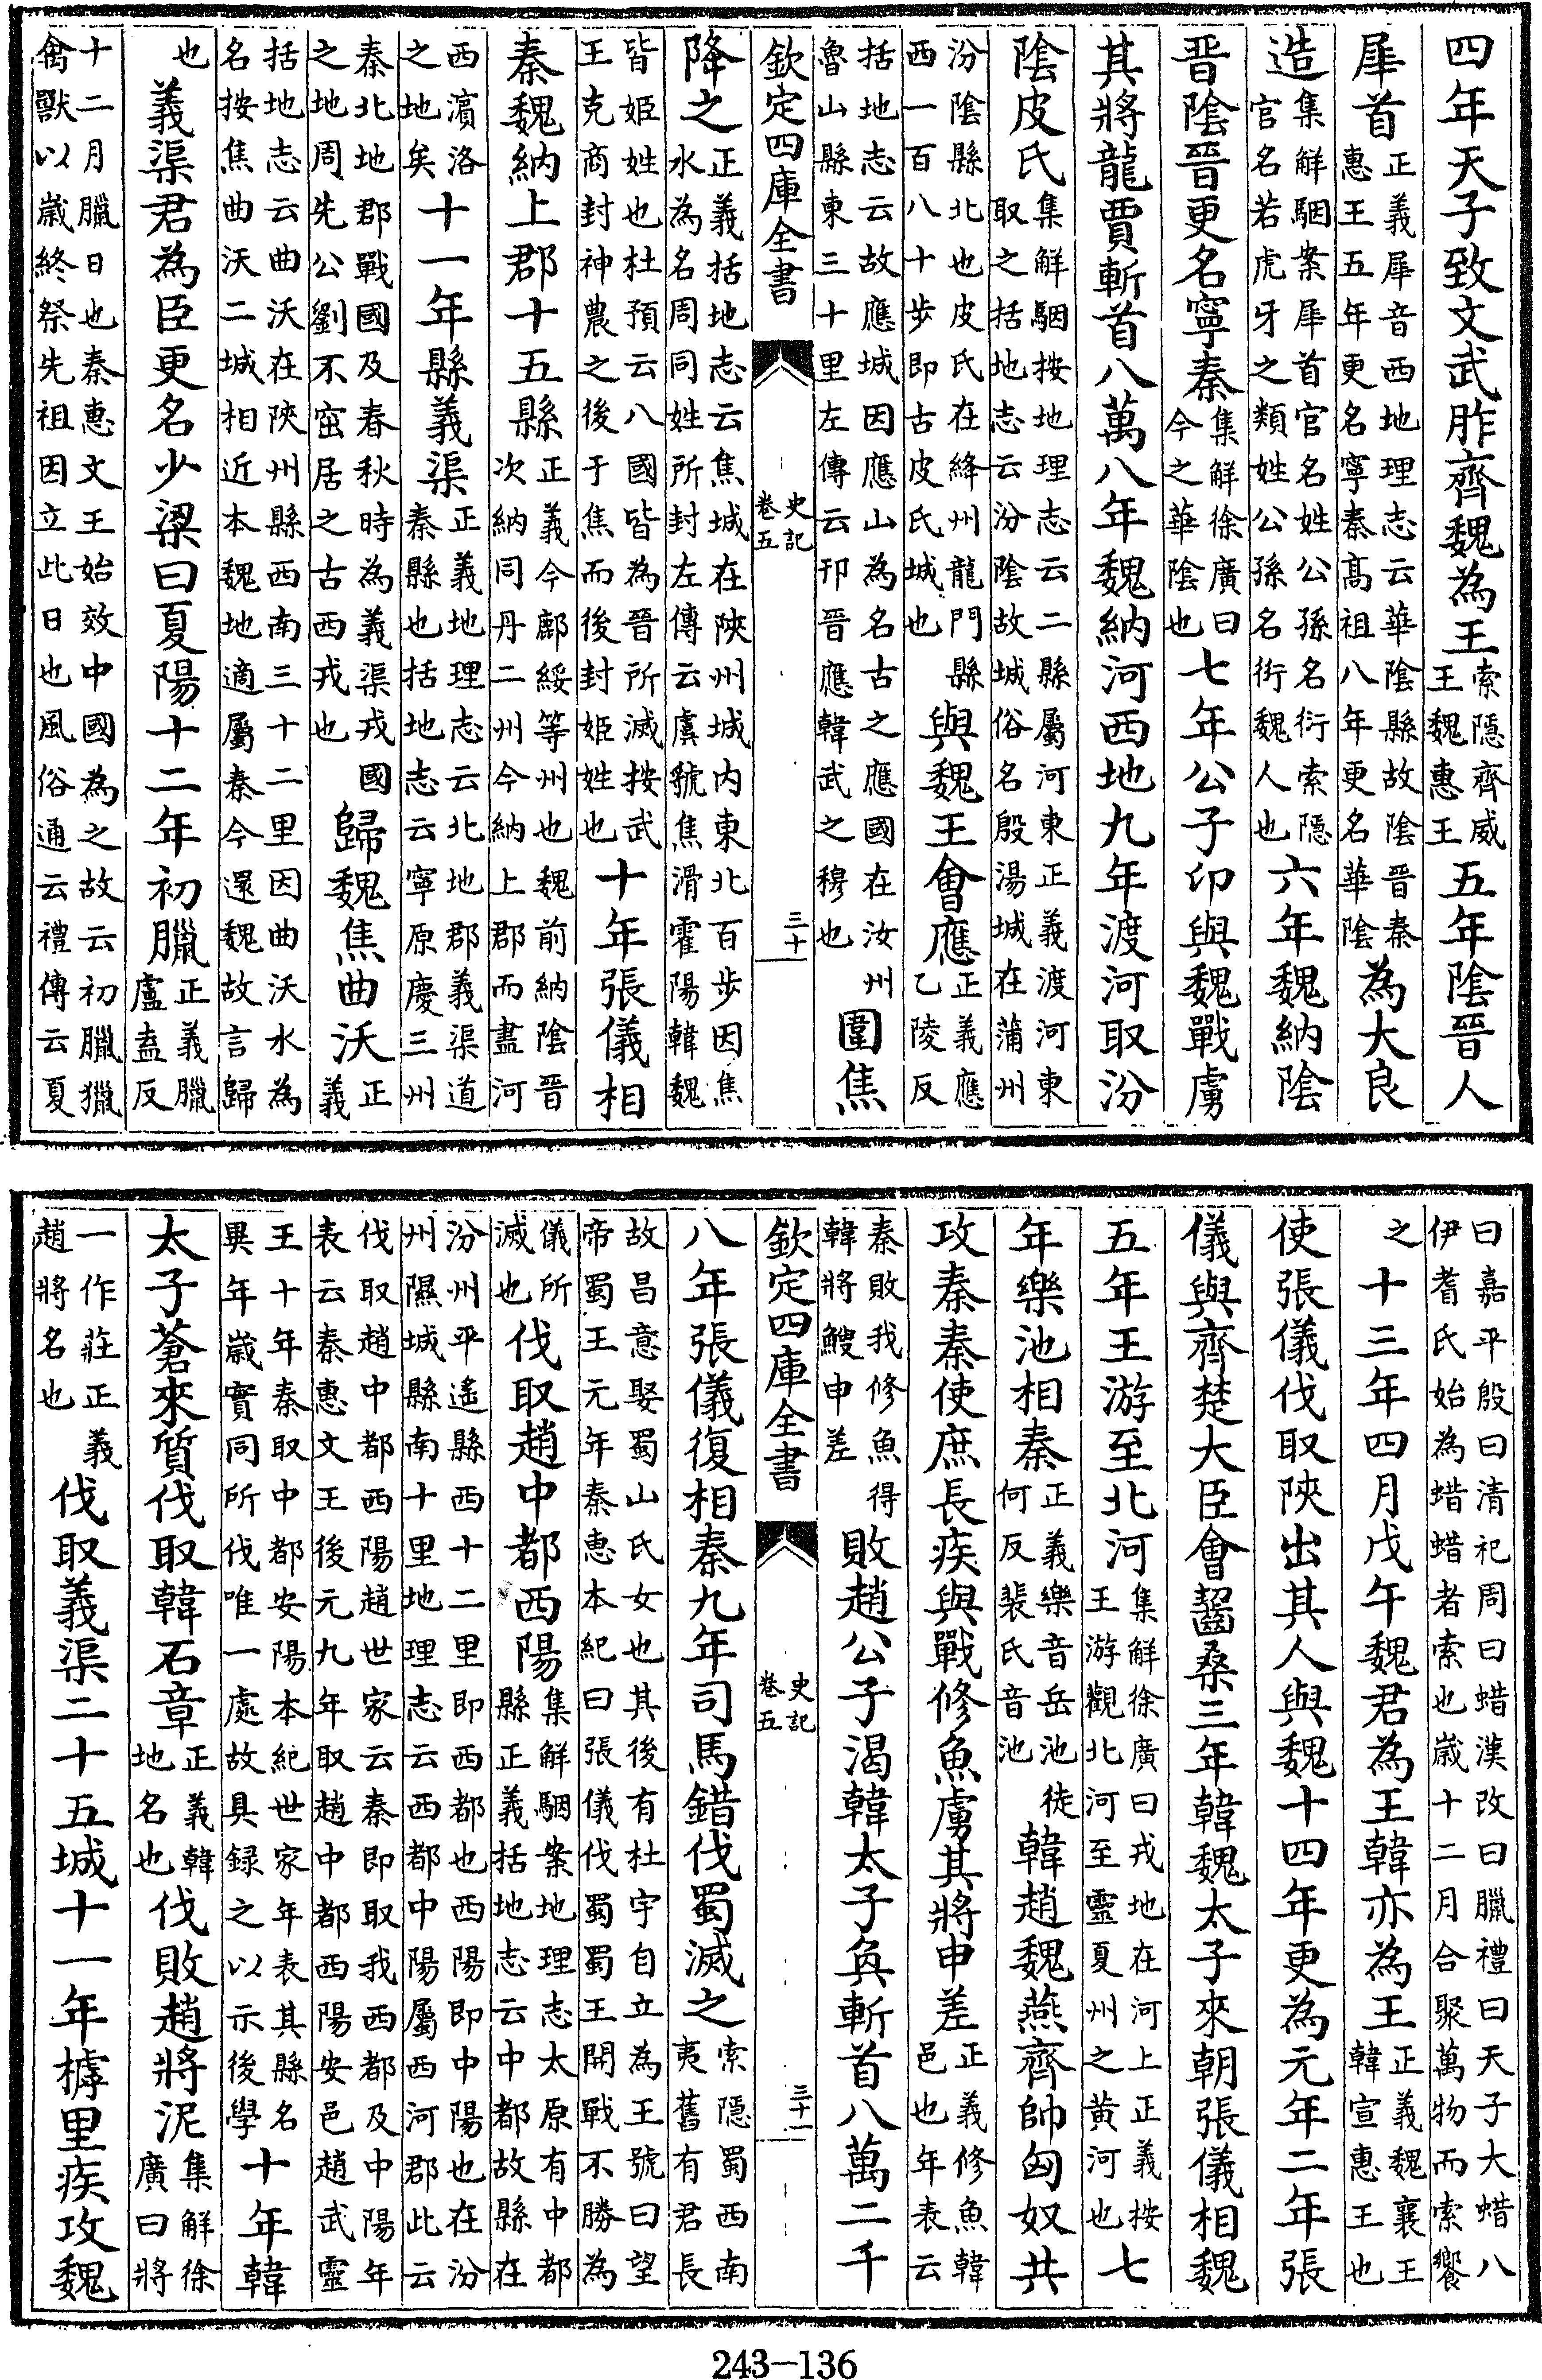 四年天子致文武胙齊魏為王索隱齊威王魏惠王五年陰晉人
犀首正義犀音西地理志云華陰縣故陰晉秦惠王五年更名寧秦髙祖八年更名華陰為大良
造集解駰案犀首官名姓公孫名衍索隱官名若虎牙之類姓公孫名衍魏人也六年魏納陰
晋陰晉更名寧秦集解徐廣曰今之華陰也七年公子卬與魏戰虜
其將龍賈斬首八萬八年魏納河西地九年渡河取汾
陰皮氏集解駰按地理志云二縣屬河東正義渡河東取之括地志云汾陰故城俗名殷湯城在蒲州
汾陰縣北也皮氏在絳州龍門縣西一百八十步即古皮氏城也與魏王會應正義應乙陵反
括地志云故應城因應山為名古之應國在汝州魯山縣東三十里左傳云邘晉應韓武之穆也圍焦
欽定四庫全書
史記
卷五
三十
降之正義括地志云焦城在陝州城内東北百步因焦水為名周同姓所封左傳云虞虢焦滑霍陽韓魏
皆姬姓也杜預云八國皆為晉所滅按武王克商封神農之後于焦而後封姬姓也十年張儀相
秦魏納上郡十五縣正義今鄜綏等州也魏前納陰晉次納同丹二州今納上郡而盡河
西濵洛之地矣十一年縣義渠正義地理志云北地郡義渠道秦縣也括地志云寧原慶三州
秦北地郡戰國及春秋時為義渠戎國之地周先公劉不窋居之古西戎也歸魏焦曲沃正義
括地志云曲沃在陝州縣西南三十二里因曲沃水為名按焦曲沃二城相近本魏地適屬秦今還魏故言歸
也義渠君為臣更名少梁曰夏陽十二年初臘正義臘盧盍反
十二月臘日也秦惠文王始效中國為之故云初臘獵禽獸以歳終祭先祖因立此日也風俗通云禮傳云夏
曰嘉平殷曰清祀周曰蜡漢改曰臘禮曰天子大蜡八伊耆氏始為蜡蜡者索也歳十二月合聚萬物而索饗
之十三年四月戊午魏君為王韓亦為王正義魏襄王韓宣惠王也
使張儀伐取陝出其人與魏十四年更為元年二年張
儀與齊楚大臣會齧桑三年韓魏太子來朝張儀相魏
五年王游至北河集解徐廣曰戎地在河上正義按王游觀北河至靈夏州之黄河也七
年樂池相秦正義樂音岳池徒何反裴氏音池韓趙魏燕齊帥匈奴共
攻秦秦使庶長疾與戰修魚虜其將申差正義修魚韓邑也年表云
秦敗我修魚得韓將鯁申差敗趙公子渴韓太子奐斬首八萬二千
欽定四庫全書
史記
卷五
三十一
八年張儀復相秦九年司馬錯伐蜀滅之索隱蜀西南夷舊有君長
故昌意娶蜀山氏女也其後有杜宇自立為王號曰望帝蜀王元年秦惠本紀曰張儀伐蜀蜀王開戰不勝為
儀所滅也伐取趙中都西陽集解駰案地理志太原有中都縣正義括地志云中都故縣在
汾州平遙縣西十二里即西都也西陽即中陽也在汾州隰城縣南十里地理志云西都中陽屬西河郡此云
伐取趙中都西陽趙世家云秦即取我西都及中陽年表云秦惠文王後元九年取趙中都西陽安邑趙武靈
王十年秦取中都安陽本紀世家年表其縣名異年歳實同所伐唯一處故具録之以示後學十年韓
太子蒼來質伐取韓石章正義韓地名也伐敗趙將泥集解徐廣曰將
一作莊正義趙將名也伐取義渠二十五城十一年樗里疾攻魏
243-136